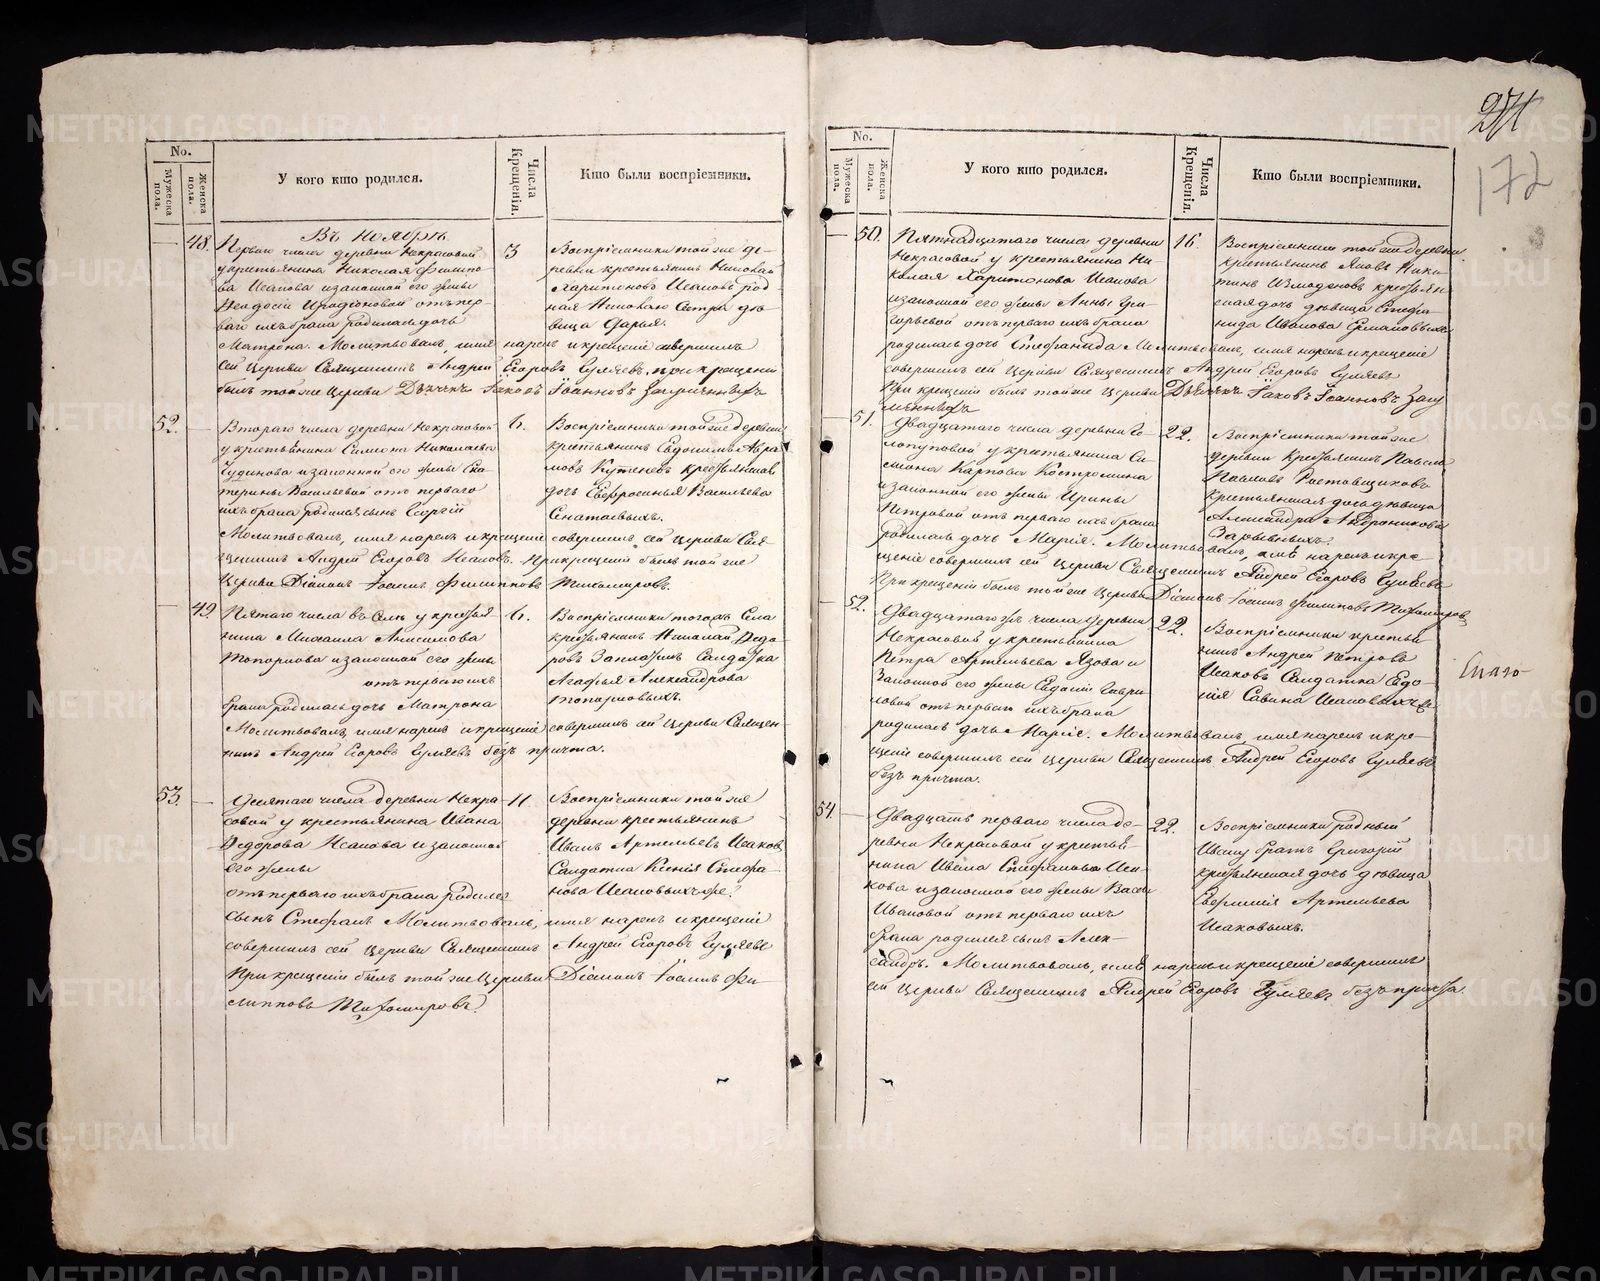 No.
Мужеска пола.
Женска пола.
У кого кто родился.
Числа Крещенія.
Кто были воспріемники.
Въ Ноябрѣ.
48.
Перваго числа деревни Некрасовой
у крестьянина Николая Филипо-
ва Исакова и законной его жены
Феодосіи Иродіоновой отъ пер-
ваго ихъ брака родилась дочь
Матрона. Молитвовалъ, имя нарекъ и крещеніе совершилъ
сей Церкви Священникъ Андрей Егоровъ Гуляевъ, при крещеніи
былъ той же Церкви Дьячекъ Іаковъ Іоанновъ
3
Воспріемники той же де-
ревни крестьянинъ Николай
Харитоновъ Исаковъ род-
ная Николаю Сестра дѣ-
вица Дарья.
52.
Втораго числа деревни Некрасовой
у крестьянина Симеона Николаева
Чудинова и законной его жены Ека-
терины Васильевой отъ перваго
ихъ брака родился сынъ Георгій
Молитвовалъ, имя нарекъ и крещеніе совершилъ сей Церкви Свя-
щенникъ Андрей Егоровъ При крещеніи былъ той же
Церкви Діаконъ Іосифъ Филипповъ Тихомировъ.
6.
Воспріемники той же деревни
крестьянинъ Евдокимъ Авра-
мовъ крестьянская
дочь Евфросинья Васильева
49.
Пятаго числа въ Селѣ у крестья-
нина Михаила Анисимова
Топоркова и законной его жены
отъ перваго ихъ
брака родилась дочь Матрона
Молитвовалъ, имя нарекъ и крещеніе совершилъ сей Церкви Священ-
никъ Андрей Егоровъ Гуляевъ безъ причта.
6.
Воспріемники тогожъ Села
крестьянинъ Николай Федо-
ровъ Солдатка
Агафья Александрова
Топорковыхъ.
53.
Десятаго числа деревни Некра-
совой у крестьянина Ивана
Федорова Исакова и законной
его жены
отъ перваго ихъ брака родился
сынъ Стефанъ Молитвовалъ, имя нарекъ и крещеніе
совершилъ сей Церкви Священникъ Андрей Егоровъ Гуляевъ
При крещеніи былъ той же Церкви Діаконъ Іосифъ Фи-
липповъ Тихомировъ.
11.
Воспріемники той же
деревни крестьянинъ
Иванъ Артемьевъ Исаковъ
Солдатка Ксенія Стефа-
нова Исаковыхъ же.
271
172
No.
Мужеска пола.
Женска пола.
У кого кто родился.
Числа Крещенія.
Кто были воспріемники.
50.
Пятнадцатаго числа деревни
Некрасовой у крестьянина Ни-
колая Харитонова Исакова
и законной его жены Анны Гри-
горьевой отъ перваго ихъ брака
родилась дочь Стефанида Молитвовалъ, имя нарекъ и крещеніе
совершилъ сей Церкви Священникъ Андрей Егоровъ Гуляевъ
При крещеніи былъ той же Церкви Дьячекъ Іаковъ Іоанновъ
16.
Воспріемники той же деревни
крестьянинъ Яковъ Ники-
тинъ крестьян-
ская дочь дѣвица Стефа-
нида Иванова
51.
Двадцатаго числа деревни Го-
лопуповой у крестьянина Си-
меона Карпова Костромина
и законной его жены Ирины
Петровой отъ перваго ихъ брака
родилась дочь Марія. Молитвовалъ, имя нарекъ и кре-
щеніе совершилъ сей Церкви Священникъ Андрей Егоровъ Гуляевъ
При крещеніи былъ той же Церкви Діаконъ Іосифъ Филиповъ Тихомировъ
22.
Воспріемники той же
деревни крестьянинъ Павелъ
Павловъ Ростовщиковъ
крестьянская дочь дѣвица
Александра Андроникова
52.
Двадцатаго числа деревни
Некрасовой у крестьянина
Петра Артемьева Язова и
Законной его жены Евдокіи Гаври-
ловой отъ перваго ихъ брака
родилась дочь Марія. Молитвовалъ, имя нарекъ и кре-
щеніе совершилъ сей Церкви Священникъ Андрей Егоровъ Гуляевъ
безъ причта.
22.
Воспріемники крестья-
нинъ Андрей Петровъ
Исаковъ Солдатка Евдо-
кія Савина Исаковыхъ же
54.
Двадцать перваго числа де-
ревни Некрасовой у крестья-
нина Ивана Стефанова Иса-
кова и законной его жены Васс
Ивановой отъ перваго ихъ
брака родился сынъ Алек-
сандръ. Молитвовалъ, имя нарекъ и крещеніе совершилъ
сей Церкви Священникъ Андрей Егоровъ Гуляевъ безъ причта.
22.
Воспріемники родный
Ивану братъ Григорій
крестьянская дочь дѣвица
Артемьева
Исаковыхъ.
METRIKI.GASO-URAL.RU